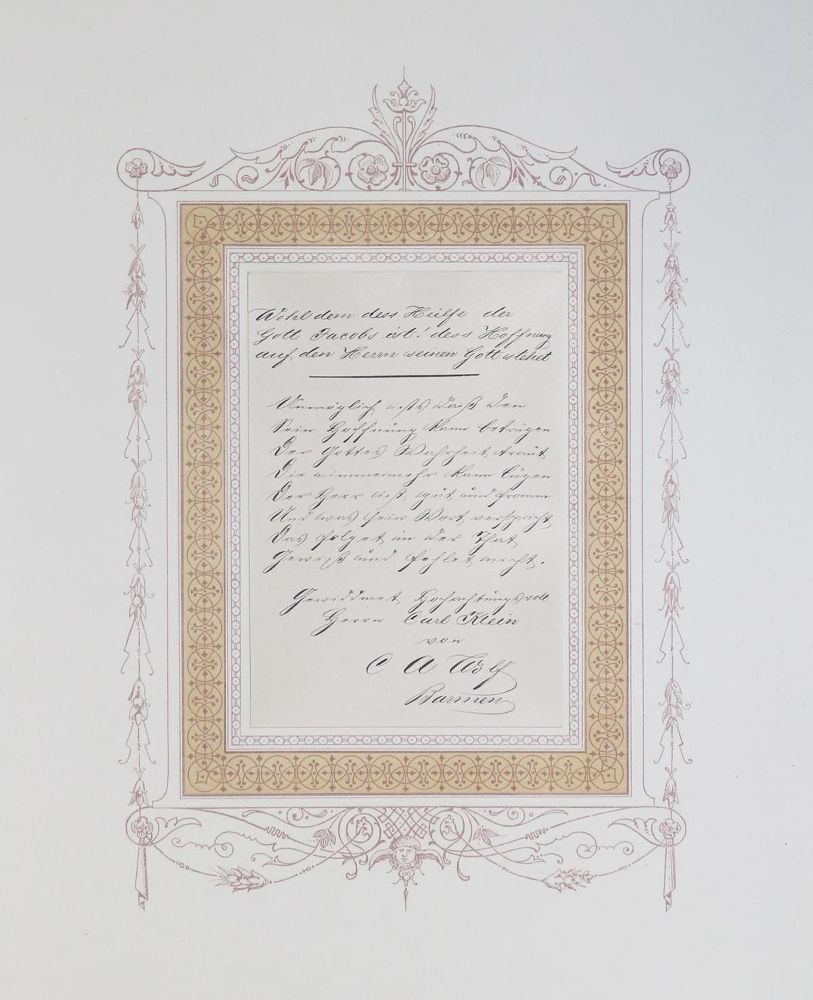 Wohl dem dess Hülfe der
Gott Jacobs ist! dess Hoffnung
auf den Herrn seinen Gott stehet
Unmöglich ists daß den
Sein Hoffnung kann betrügen
Der Gottes Wahrheit traut
Die nimmermehr kann lügen
Der Herr ist gut und fromm
Und was Sein Wort verspricht
Das folget in der That
Gewiß und fehlet nicht.
Gewiddmet Hochachtungsvoll
Herrn Carl Klein
von
C A Wolf
Barmen